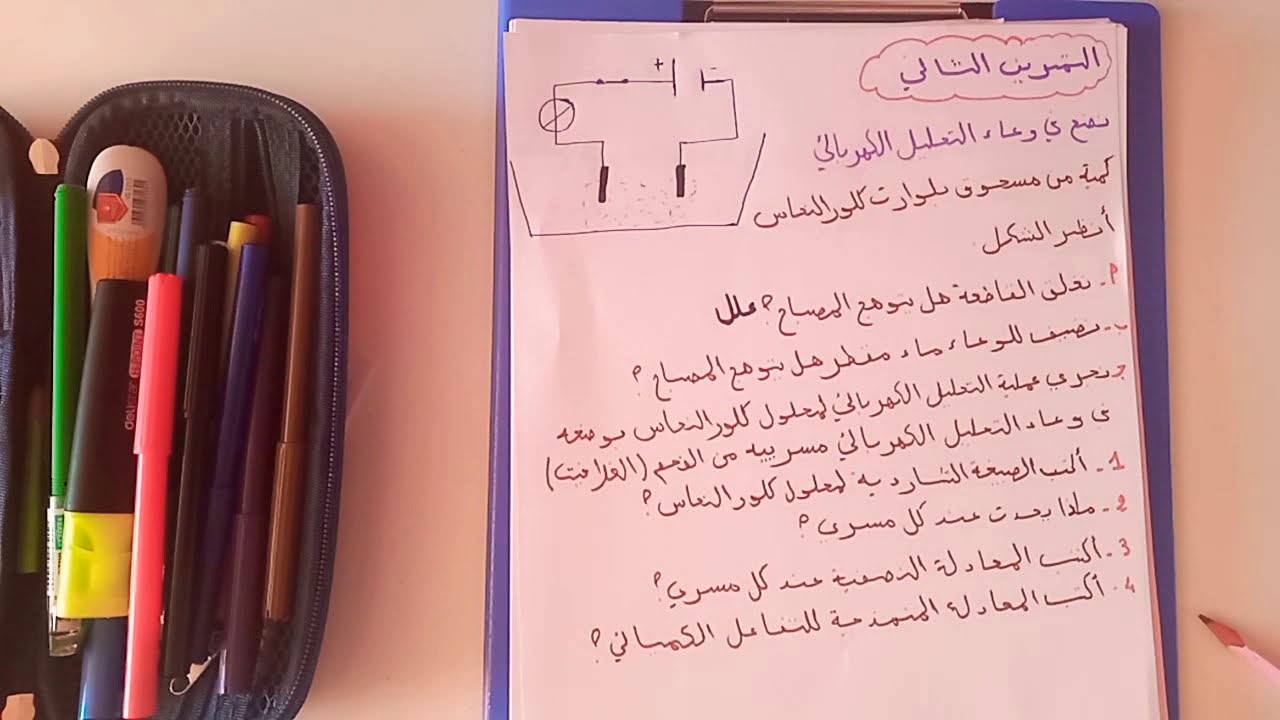 التمرين الثاني
نضع في وعاء التحليل الكهربائي
كمية من مسحوق بلورات كلور النحاس
أنظر الشكل
+ -
أ- نغلق القاطعة هل يتوهج المصباح؟ علل
ب- نضيف للوعاء ماء مقطر هل يتوهج المصباح؟
ج- نجري عملية التحليل الكهربائي لمحلول كلور النحاس بوضعه
في وعاء التحليل الكهربائي مسرييه من الفحم (الغرافيت)
1- أكتب الصيغة الشاردية لمحلول كلور النحاس؟
2- ماذا يحدث عند كل مسرى؟
3- أكتب المعادلة النصفية عند كل مسرى؟
4- أكتب المعادلة المنمذجة للتفاعل الكميائي؟
deli
S600